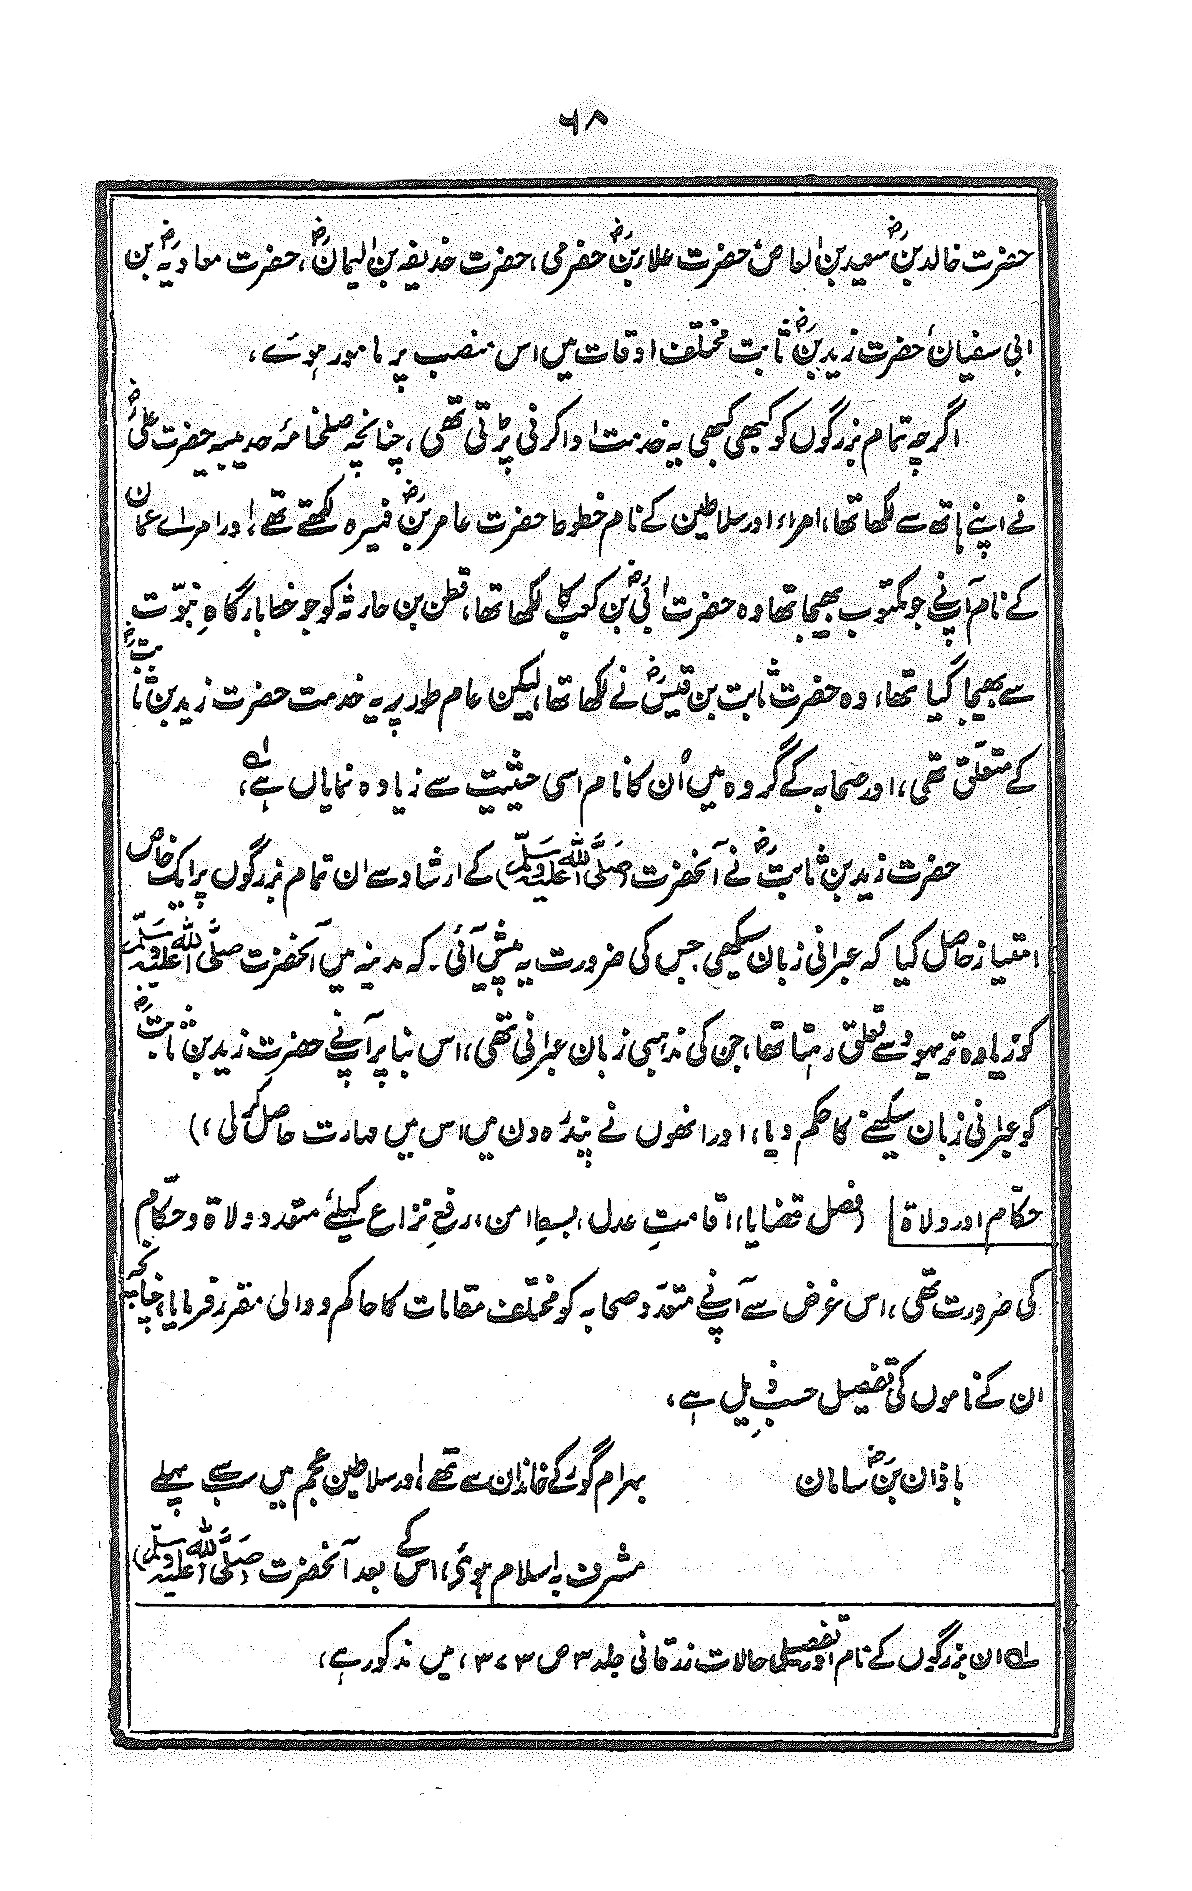 ۶۸
حضرت خالد بنؓ سعید بن العاصؓ حضرت علاء بنؓ حضرمی، حضرت حذیفہ بن الیمانؓ، حضرت معاویہؓ بن
ابی سفیان، حضرت زید بنؓ ثابت مختلف اوقات میں اس منصب پر مامور ہوئے،
اگرچہ تمام بزرگوں کو کبھی کبھی یہ خدمت ادا کرنی پڑتی تھی، چنانچہ صلحنامۂ حدیبیہ حضرت علیؓ
نے اپنے ہاتھ سے لکھا تھا، امراء اور سلاطین کے نام خطوط حضرت عامر بنؓ فہیرہ لکھتے تھے، اور امراے عمان
کے نام آپنے جو مکتوب بھیجا تھا وہ حضرت ابیؓ بن کعب کا لکھا تھا، قطن بن حارثہ کو جو خط بارگاہِ نبوّت
سے بھیجا گیا تھا، وہ حضرت ثابت بن قیسؓ نے لکھا تھا، لیکن عام طور پر یہ خدمت حضرت زید بن ثابتؓ
کے متعلّق تھی، اور صحابہ کے گروہ میں اُن کا نام اسی حیثیت سے زیادہ نمایاں ہےلہ،
حضرت زید بن ثابتؓ نے آنحضرت (صَلَّی اللہ عَلَیْہِ وَسَلَّمَ) کے ارشاد سے ان تمام بزرگوں پر ایک خاص
امتیاز حاصل کیا کہ عبرانی زبان سیکھی جس کی ضرورت یہ پیش آئی۔ کہ مدینہ میں آنحضرت صَلَّی اللہ عَلَیْہِ وَسَلَّمَ
کو زیادہ تر یہود سے تعلق رہتا تھا، جن کی مذہبی زبان عبرانی تھی، اس بنا پر آپنے حضرت زید بن ثابتؓ
کو عبرانی زبان سیکھنے کا حکم دیا، اور انھوں نے پندرہ دن میں اس میں مہارت حاصل کر لی،)
حکّام اور ولاة (فصل قضایا، اقامتِ عدل، بسطِ امن، رفعِ نزاع کیلئے متعدد ولاة و حکّام
کی ضرورت تھی، اس غرض سے آپنے متعدّد صحابہ کو مختلف مقامات کا حاکم و والی مقرر فرمایا، چنانچہ
ان کے ناموں کی تفصیل حسب ذیل ہے،
باذان بنؓ سامان بہرام گور کے خاندان سے تھے اور سلاطین عجم میں سب سے پہلے
مشرف بہ اسلام ہوئے، اس کے بعد آنحضرت (صَلَّی اللہ عَلَیْہِ وَسَلَّمَ)
لہ ان بزرگوں کے نام اور تفصیلی حالات زرقانی جلد ۳ ص ۳۷۳، میں مذکور ہے،